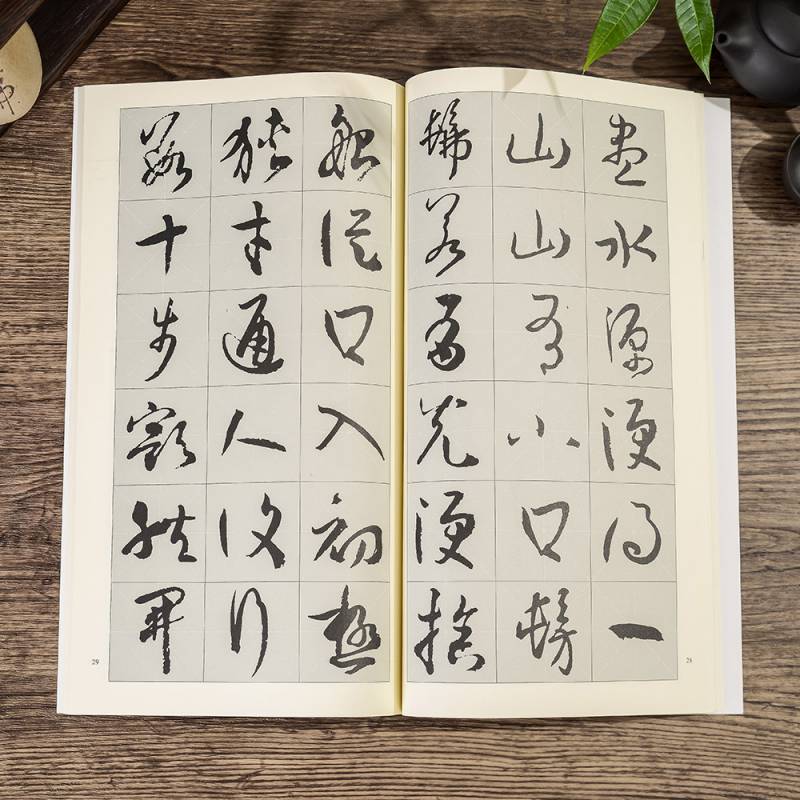 盡水源便得一
山山有小口髣
髴若有光便捨
船從口入初極
狹才通人復行
數十步豁然開
28
29